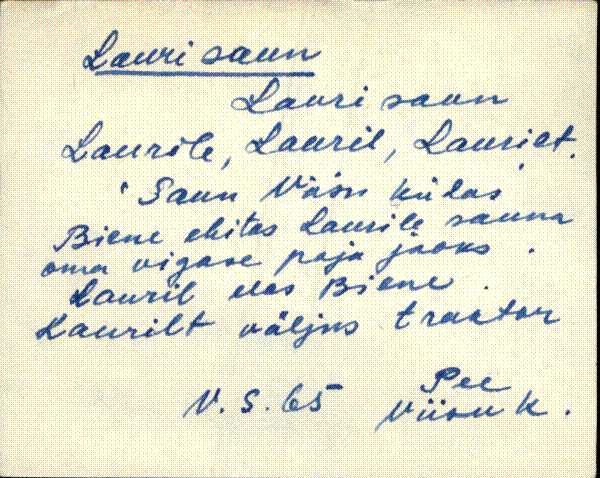 Lauri saun
Lauri saun
Laurile, Lauril, Laurilt.
'Saun Viisu külas'
Biene ehitas Laurile sauna
oma vigase poja jaoks.
Lauril elas Biene.
Laurilt väljus traktor
V. S. 65 Pee
Viisu k.